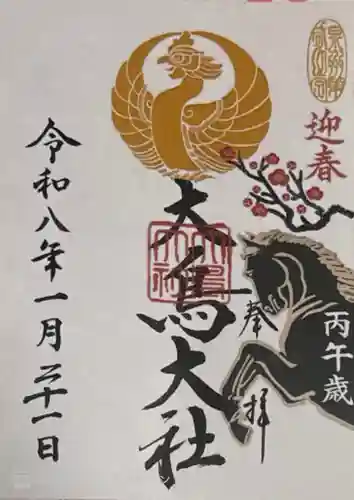 迎春
丙午歳
奉拝
大鳥大社
大鳥大社
令和八年一月二十一日